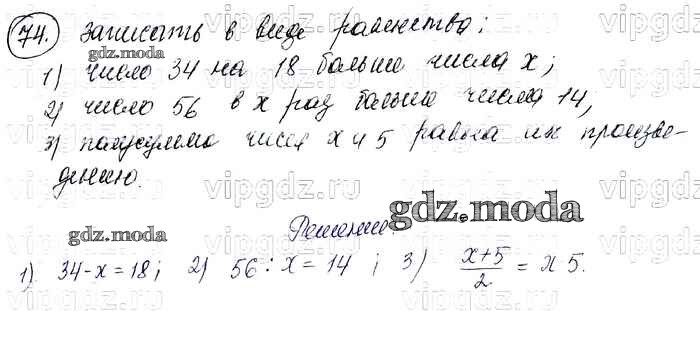 74. Записать в виде равенства:
1) число 34 на 18 больше числа x;
2) число 56 в x раз больше числа 14;
3) полусумма чисел x и 5 равна их произве-
дению.
Решение:
1). 34-x=18; 2) 56:x=14 ; 3) (x+5)/2 = x5.
gdz.moda
gdz.moda
gdz.moda
vipgdz.ru